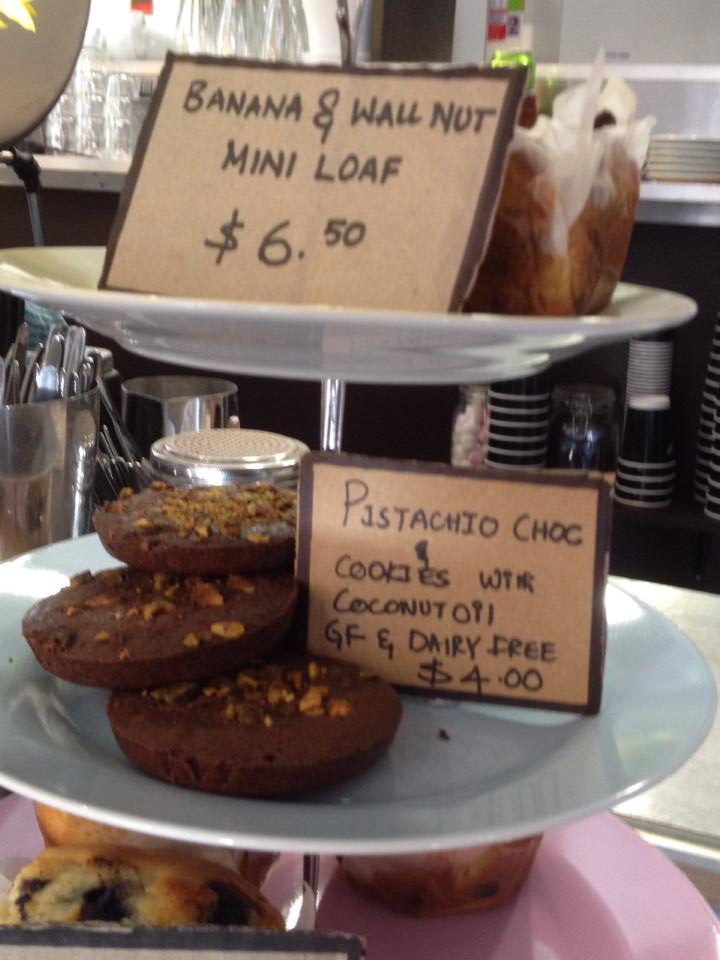 BANANA & WALL NUT
MINI LOAF
$6.50
PISTACHIO CHOC
&
COOKIES WITH
COCONUT OIl
GF & DAIRY FREE
$4.00